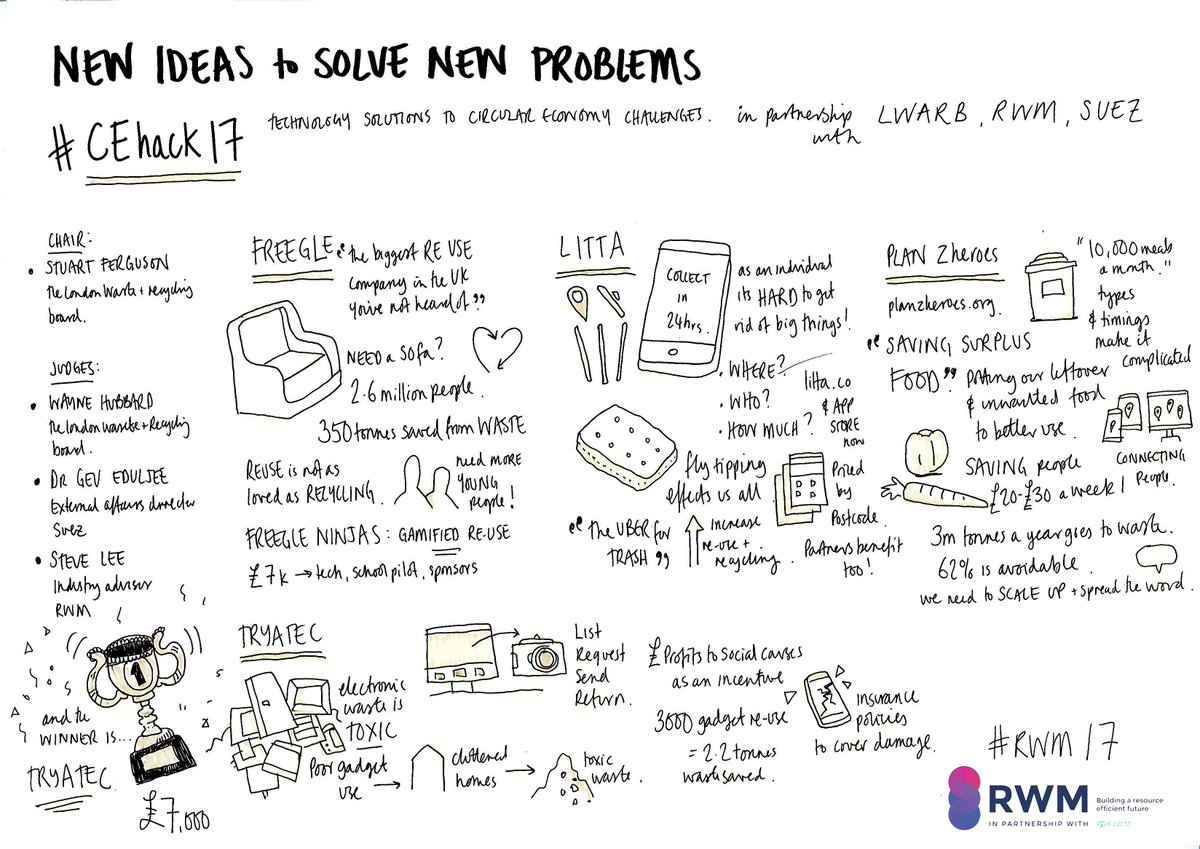 NEW IDEAS to SOLVE NEW PROBLEMS
#CEhack17
TECHNOLOGY SOLUTIONS TO CIRCULAR ECONOMY CHALLENGES. in partnership
with
LWARB, RWM, SUEZ
CHAIR:
• STUART FERGUSON
the London Waste + Recycling
board.
JUDGES:
• WAYNE HUBBARD
the London Waste + Recycling
board.
• DR GEV EDULJEE
External affairs director
Suez
• STEVE LEE
Industry advisor
RWM
1
and the
WINNER IS...
TRYATEC
£7,000
FREEGLE
"the biggest RE USE
company in the UK
you've not heard of"
NEED A SOFA?
2.6 million people.
350 tonnes saved from WASTE
REUSE is not as
loved as RECYCLING.
need MORE
YOUNG
PEOPLE!
FREEGLE NINJAS: GAMIFIED RE-USE
£7k → tech, school pilot, sponsors
LITTA
COLLECT
in
24hrs.
as an individual
its HARD to get
rid of big things!
• WHERE?
• WHO?
• HOW MUCH?
litta.co
& APP
STORE
now
fly tipping
effects us all
"The UBER for
TRASH"
increase
re-use +
recycling.
Priced
by
Postcode.
Partners benefit
too!
PLAN Zheroes
planzheroes.org.
"10,000 meals
a month."
types
& timings
make it
complicated
"SAVING SURPLUS
FOOD" Putting our leftover
& unwanted food
to better use.
CONNECTING
People.
SAVING people
£20-£30 a week!
3m tonnes a year goes to waste.
62% is avoidable.
we need to SCALE UP + spread the word.
TRYATEC
electronic
waste is
TOXIC
Poor gadget
use →
cluttered
homes →
toxic
waste.
List
Request
Send
Return.
£ Profits to social causes
as an incentive
3000 gadget re-use
= 2.2 tonnes
waste saved.
insurance
policies
to cover damage.
#RWM17
RWM
Building a resource
efficient future
IN PARTNERSHIP WITH